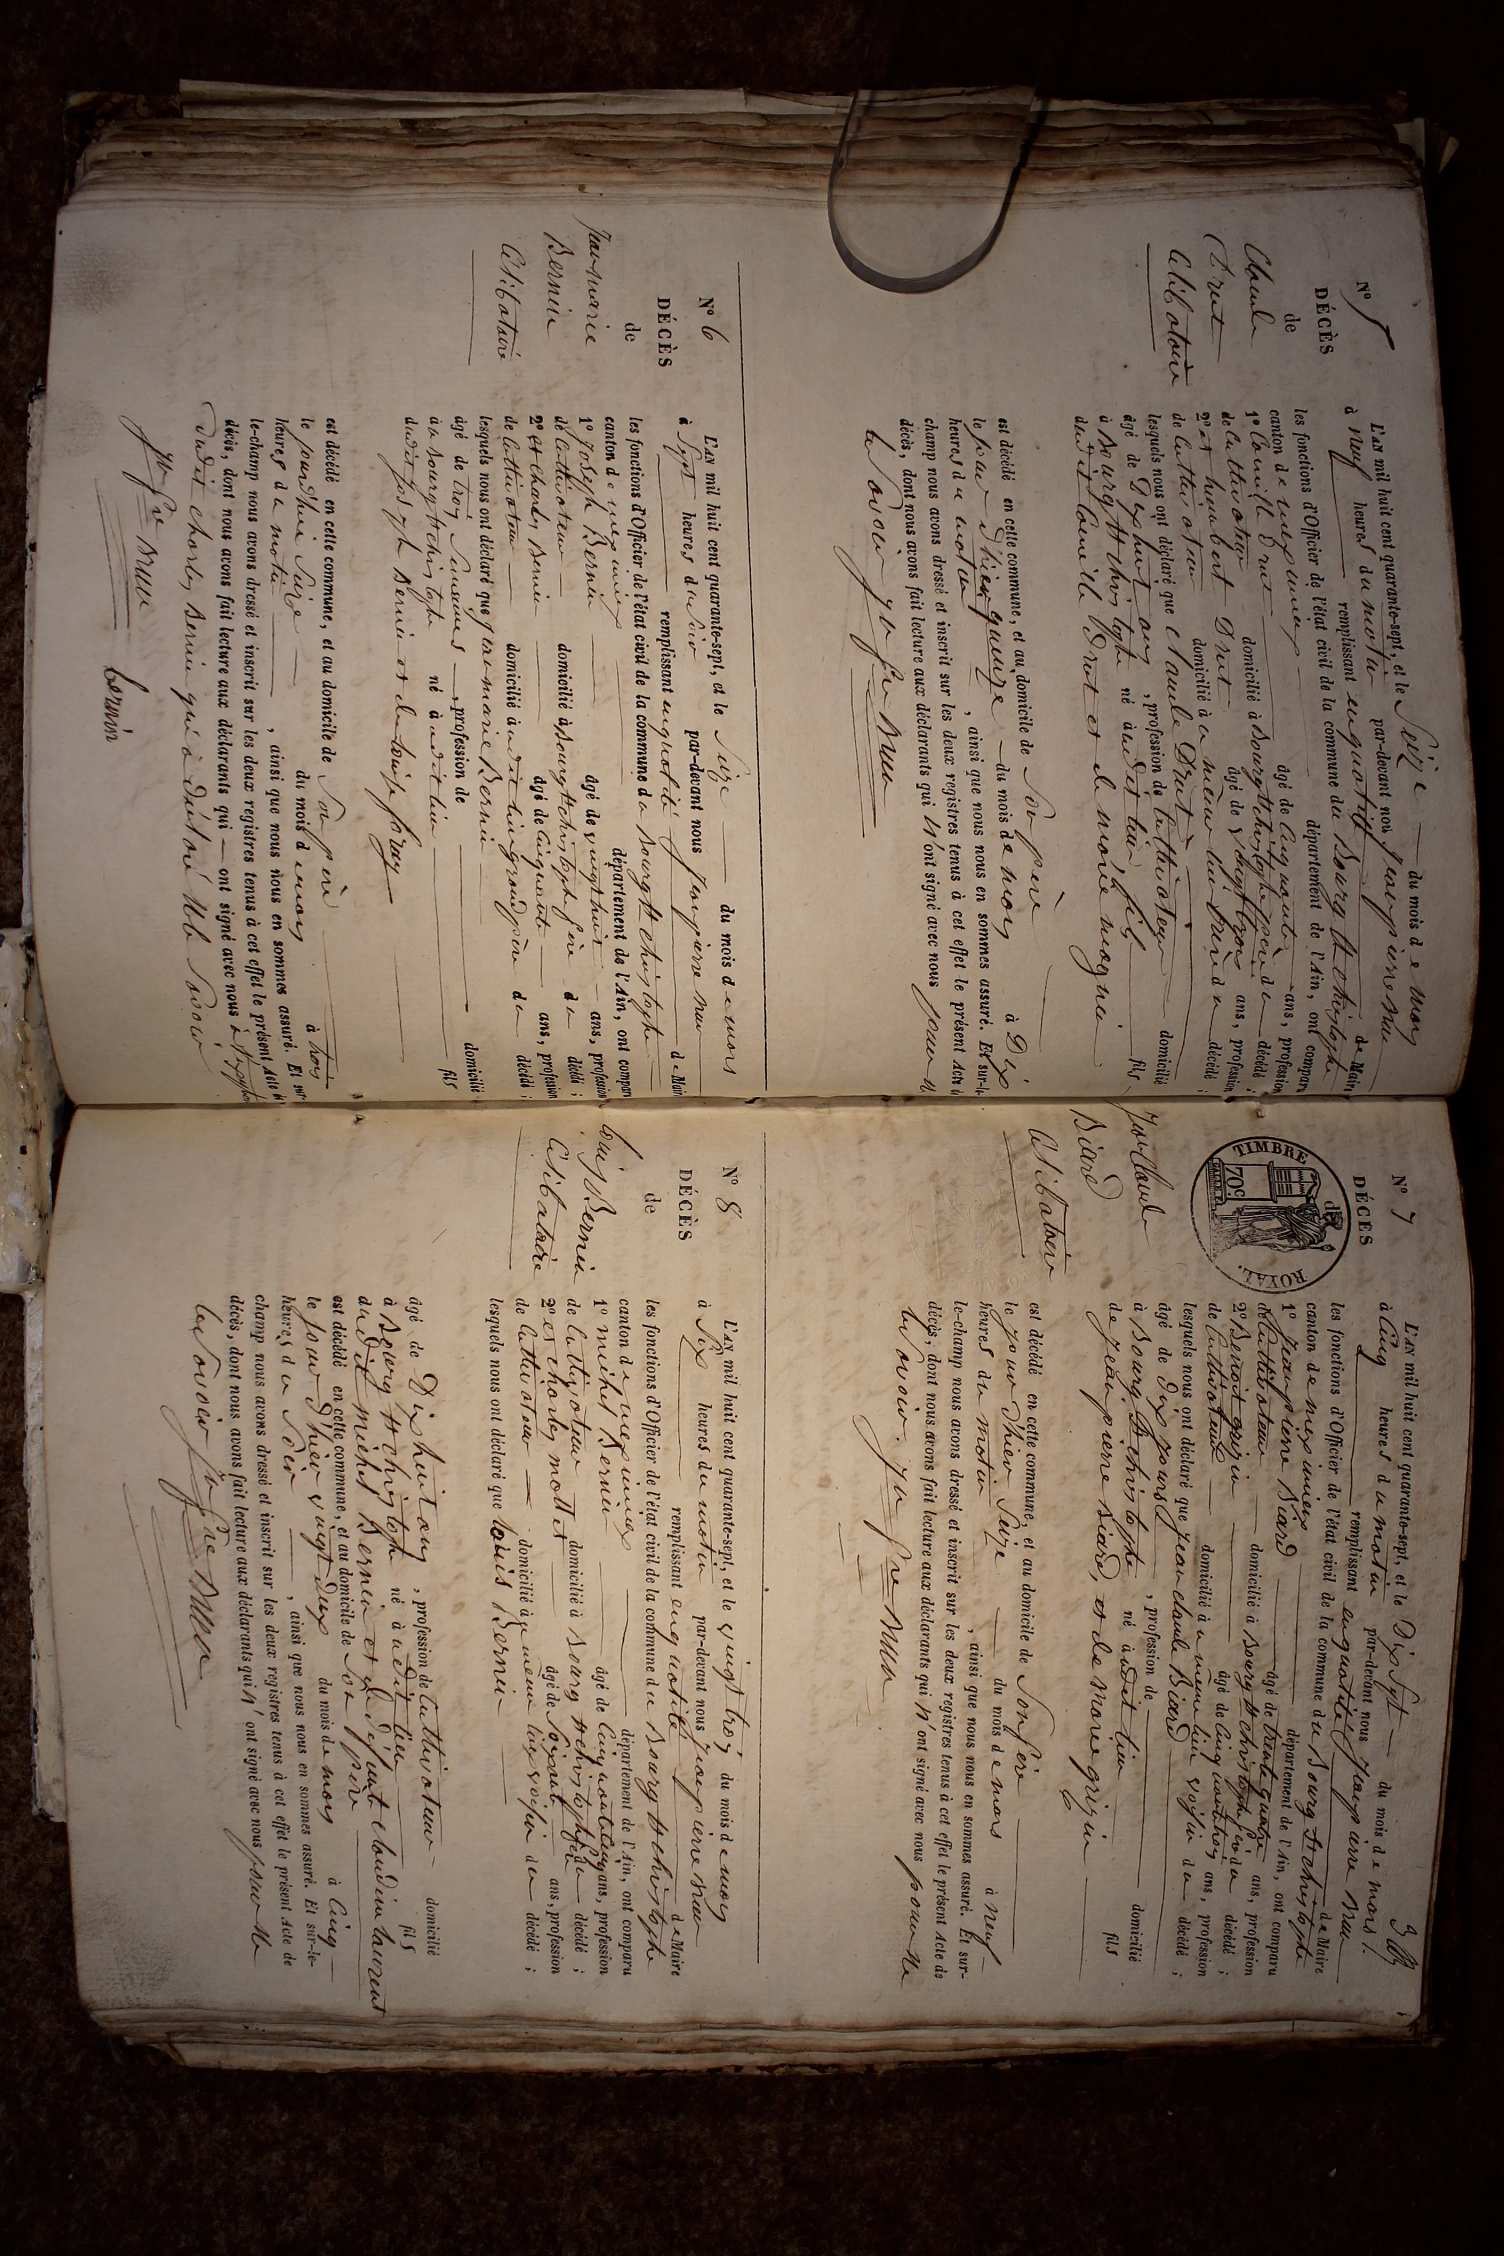 N° 5
DÉCÈS
de
Claude
Drut
Célibataire
L'AN mil huit cent quarante-sept, et le Seize du mois de mars
à neuf heures du matin par-devant nous jean pierre
remplissant en qualité de Maire
les fonctions d'Officier de l'état civil de la commune du Bourg St christophe
canton de meximieux département de l'Ain, ont comparu
1° Camille Drut âgé de Cinquante ans, profession
de Cultivateur domicilié à Bourg St christophe père du décédé ;
2° et humbert Drut âgé de vingt trois ans, profession
de Cultivateur domicilié à même lieu frère du décédé ;
lesquels nous ont déclaré que claude Drut
âgé de Dix huit ans, profession de Cultivateur domicilié
à Bourg St christophe né audit lieu, fils
dudit Camille Drut et de marie
est décédé en cette commune, et au domicile de Son père
le jour d'hier quinze du mois de mars à Dix
heures du matin, ainsi que nous nous en sommes assuré. Et sur-le-
champ nous avons dressé et inscrit sur les deux registres tenus à cet effet le présent Acte de
décès, dont nous avons fait lecture aux déclarants qui n'ont signé avec nous pour ne
le Savoir
N° 6
DÉCÈS
de
Jean marie
Bernin
Célibataire
L'AN mil huit cent quarante-sept, et le Seize du mois de mars
à Sept heures du Soir par-devant nous jean pierre
remplissant en qualité de Maire
les fonctions d'Officier de l'état civil de la commune du Bourg St christophe
canton de meximieux département de l'Ain, ont comparu
1° Joseph Bernin âgé de vingt huit ans, profession
de Cultivateur domicilié à Bourg St christophe père du décédé ;
2° et charles Bernin âgé de Cinquante ans, profession
de Cultivateur domicilié à audit lieu grand père du décédé ;
lesquels nous ont déclaré que jean marie Bernin
âgé de trois Semaines, profession de domicilié
à Bourg St christophe né à audit lieu fils
dudit joseph Bernin et de louise
est décédé en cette commune, et au domicile de Son père
le jourd'hui Seize du mois de mars à trois
heures du matin, ainsi que nous nous en sommes assuré. Et sur-
le-champ nous avons dressé et inscrit sur les deux registres tenus à cet effet le présent Acte de
décès, dont nous avons fait lecture aux déclarants qui ont signé avec nous à
dudit charles Bernin qui a déclaré ne Savoir
bernin
N° 7
DÉCÈS
de
TIMBRE ROYAL.
70c
Jean Claude
Biard
Célibataire
L'AN mil huit cent quarante-sept, et le Dix Sept du mois de mars
à Cinq heures du matin par-devant nous jean pierre
remplissant en qualité de Maire
les fonctions d'Officier de l'état civil de la commune du Bourg St christophe
canton de meximieux département de l'Ain, ont comparu
1° Jean pierre Biard âgé de trente quatre ans, profession
de Cultivateur domicilié à Bourg St christophe père du décédé ;
2° Benoit grizin âgé de Cinquante trois ans, profession
de Cultivateur domicilié à même lieu voisin du décédé ;
lesquels nous ont déclaré que jean claude Biard
âgé de Dix jours, profession de domicilié
à Bourg St christophe né à audit lieu fils
de jean pierre Biard, et de marie grizin
est décédé en cette commune, et au domicile de Son père
le jour d'hier Seize du mois de mars à neuf
heures du matin, ainsi que nous nous en sommes assuré. Et sur-
le-champ nous avons dressé et inscrit sur les deux registres tenus à cet effet le présent Acte de
décès, dont nous avons fait lecture aux déclarants qui n'ont signé avec nous pour ne
le Savoir.
N° 8
DÉCÈS
de
Louis Bernin
Célibataire
L'AN mil huit cent quarante-sept, et le vingt trois du mois de mars
à Six heures du matin par-devant nous jean pierre
remplissant en qualité de Maire
les fonctions d'Officier de l'état civil de la commune du Bourg St christophe
canton de meximieux département de l'Ain, ont comparu
1° michel Bernin âgé de Cinquante Cinq ans, profession
de Cultivateur domicilié à Bourg St christophe père du décédé ;
2° et charles mollet âgé de Soixante ans, profession
de Cultivateur domicilié à même lieu voisin du décédé ;
lesquels nous ont déclaré que Louis Bernin
âgé de Dix huit ans, profession de Cultivateur domicilié
à Bourg St christophe né à audit lieu fils
dudit michel Bernin et de défunte claudine laurent
est décédé en cette commune, et au domicile de Son père
le jour d'hier vingt deux du mois de mars à Cinq
heures du Soir, ainsi que nous nous en sommes assuré. Et sur-le-
champ nous avons dressé et inscrit sur les deux registres tenus à cet effet le présent Acte de
décès, dont nous avons fait lecture aux déclarants qui n'ont signé avec nous pour ne
le Savoir